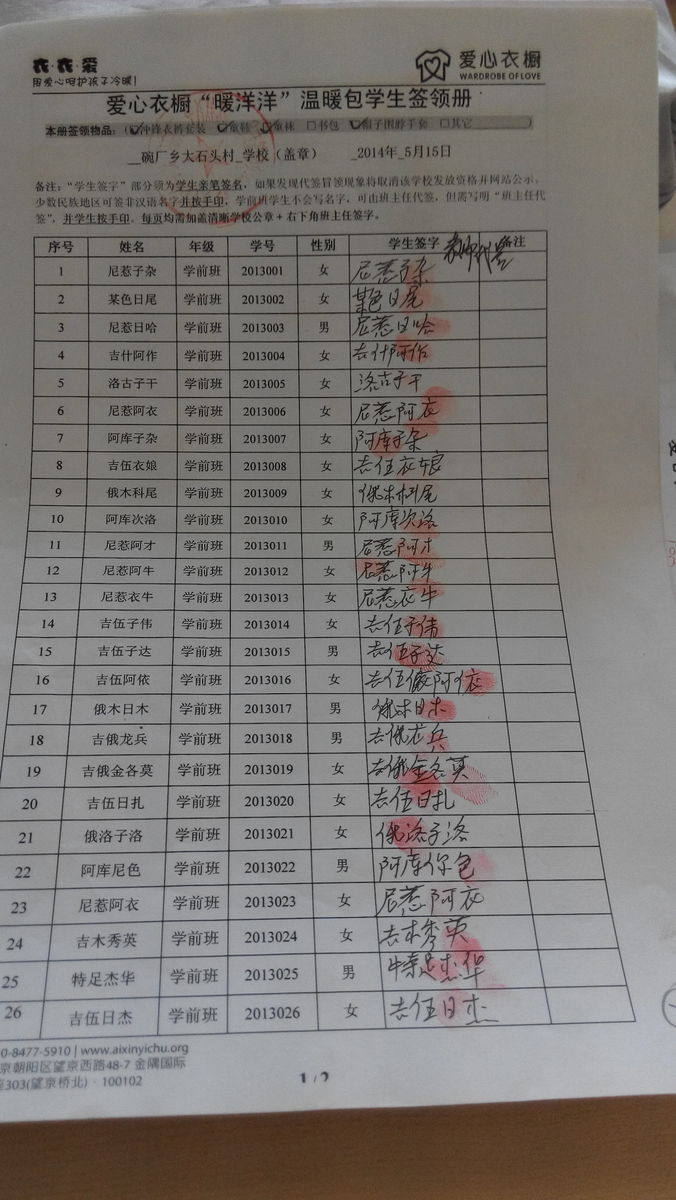 衣·衣·爱
用爱心呵护孩子冷暖!
爱心衣橱
WARDROBE OF LOVE
爱心衣橱“暖洋洋”温暖包学生签领册
本册签领物品:(☑冲锋衣裤套装 ☑童鞋 ☑童袜 □书包 ☑帽子围脖手套 □其它______)
__碗厂乡大石头村_学校(盖章) _2014年_5月15日
备注:“学生签字”部分须为学生亲笔签名,如果发现代签冒领现象将取消该学校发放资格并网站公示。
少数民族地区可签非汉语名字并按手印,学前班学生不会写名字,可由班主任代签,但需写明“班主任代
签”,并学生按手印。每页均需加盖清晰学校公章+右下角班主任签字。
序号 姓名 年级 学号 性别 学生签字 教师代签 备注
1 尼惹子杂 学前班 2013001 女 尼惹子杂
2 某色日尾 学前班 2013002 女 某色日尾
3 尼惹日哈 学前班 2013003 男 尼惹日哈
4 吉什阿作 学前班 2013004 女 吉什阿作
5 洛古子干 学前班 2013005 女 洛古子干
6 尼惹阿衣 学前班 2013006 女 尼惹阿衣
7 阿库子杂 学前班 2013007 女 阿库子杂
8 吉伍衣娘 学前班 2013008 女 吉伍衣娘
9 俄木科尾 学前班 2013009 女 俄木科尾
10 阿库次洛 学前班 2013010 女 阿库次洛
11 尼惹阿才 学前班 2013011 男 尼惹阿才
12 尼惹阿牛 学前班 2013012 女 尼惹阿牛
13 尼惹衣牛 学前班 2013013 女 尼惹衣牛
14 吉伍子伟 学前班 2013014 女 吉伍子伟
15 吉伍子达 学前班 2013015 男 吉伍子达
16 吉伍阿依 学前班 2013016 女 吉伍阿依
17 俄木日木 学前班 2013017 男 俄木日木
18 吉俄龙兵 学前班 2013018 男 吉俄龙兵
19 吉俄金各莫 学前班 2013019 女 吉俄金各莫
20 吉伍日扎 学前班 2013020 女 吉伍日扎
21 俄洛子洛 学前班 2013021 女 俄洛子洛
22 阿库尼色 学前班 2013022 男 阿库你色
23 尼惹阿衣 学前班 2013023 女 尼惹阿衣
24 吉木秀英 学前班 2013024 女 吉木秀英
25 特足杰华 学前班 2013025 男 特足杰华
26 吉伍日杰 学前班 2013026 女 吉伍日杰
0-8477-5910 | www.aixinyichu.org
京朝阳区望京西路48-7 金隅国际
303(望京桥北) · 100102
1/2